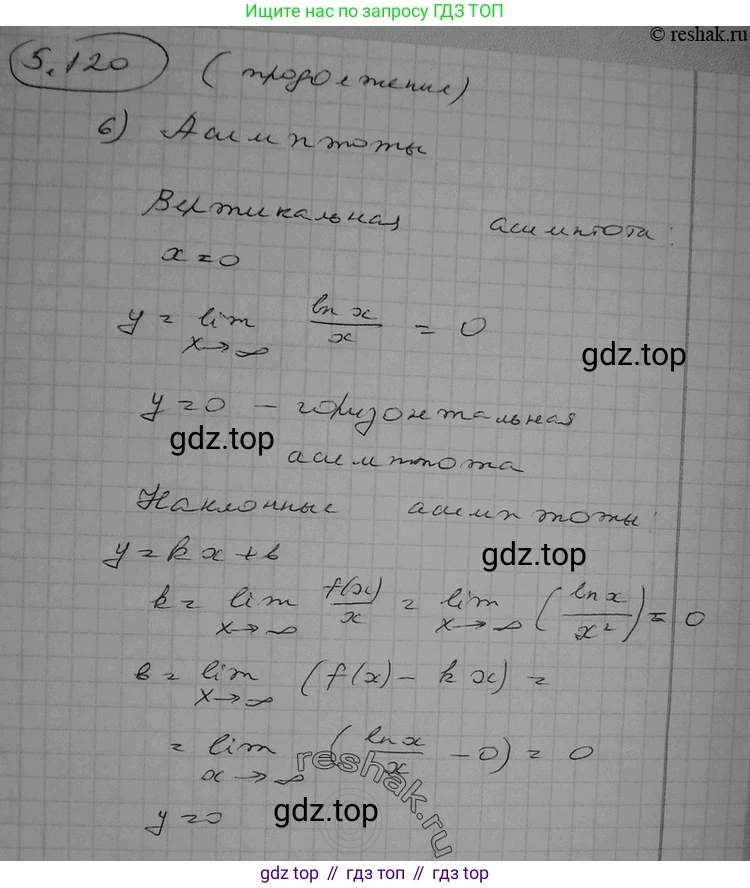 Ищите нас по запросу ГДЗ ТОП
© reshak.ru
5.120 (продолжение)
6) Асимптоты
Вертикальная асимптота:
x=0
y = lim x→∞ ln x / x = 0
gdz.top
y=0 – горизонтальная
gdz.top
асимптота
Наклонные асимптоты:
y = kx + b
gdz.top
k = lim x→∞ f(x)/x = lim x→∞ (ln x / x²) = 0
b = lim x→∞ (f(x) – kx) =
= lim x→∞ (ln x / x – 0) = 0
reshak.ru
y=0
gdz.top
gdz.top // гдз топ // gdz.top